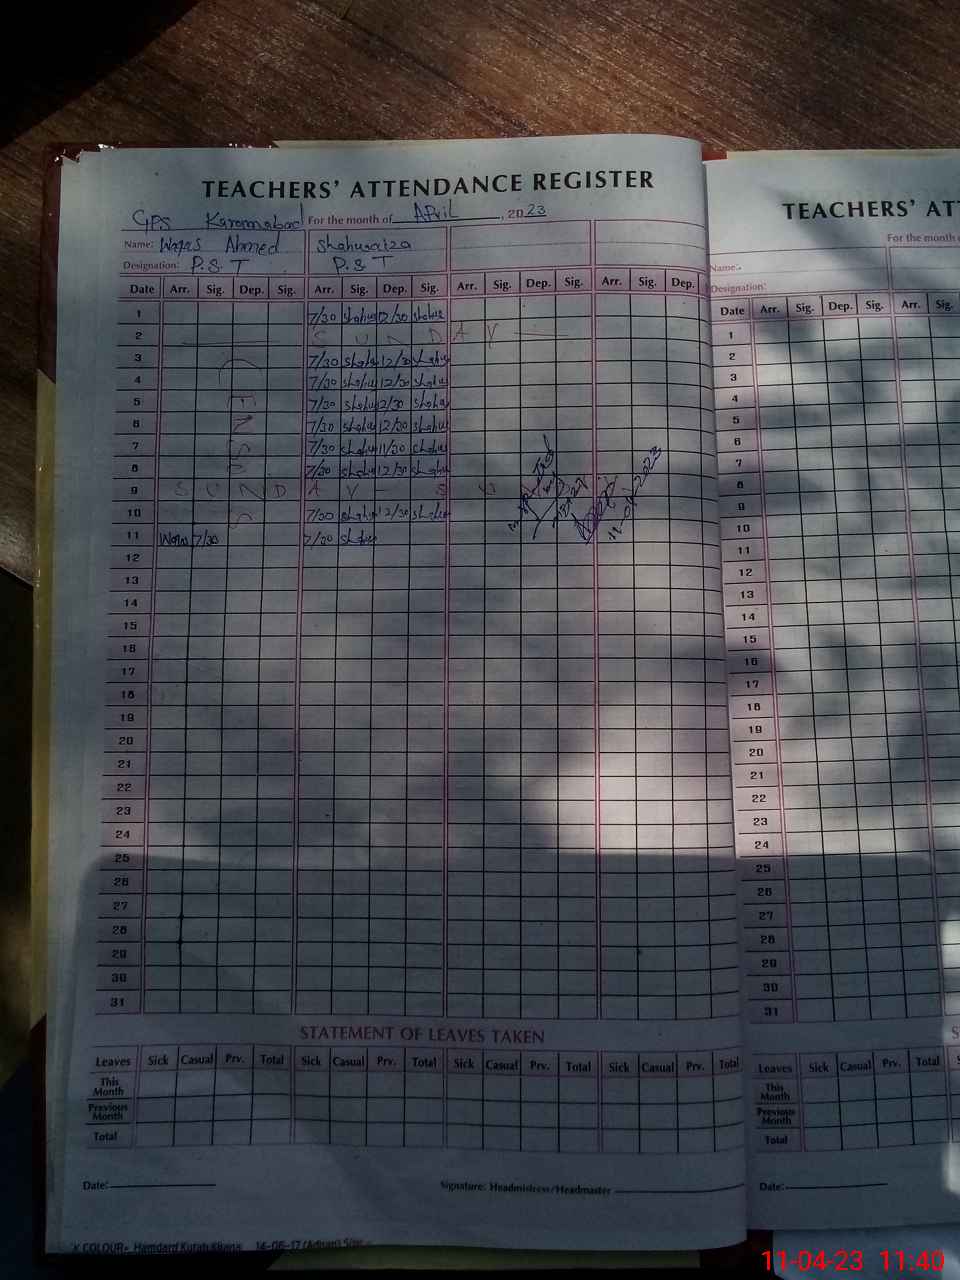 TEACHERS' ATTENDANCE REGISTER
GPS Karamabad For the month of April, 2023
Name: Waqas Ahmed Shahwaiza
Designation: P.S.T P.S.T
Date Arr. Sig. Dep. Sig. Arr. Sig. Dep. Sig. Arr. Sig. Dep. Sig. Arr. Sig. Dep. Sig.
1 7/30 12/30
2 SUNDAY
3 7/30 12/30
4 7/30 12/30
5 7/30 12/30
6 7/30 12/30
7 7/30 11/30
8 7/30 12/30
9 SUNDAY
10 7/30 12/30
11 Waqas 7/30 7/30
12
13
14
15
16
17
18
19
20
21
22
23
24
25
26
27
28
29
30
31
11-04-2023
STATEMENT OF LEAVES TAKEN
Leaves Sick Casual Prv. Total Sick Casual Prv. Total Sick Casual Prv. Total Sick Casual Prv. Total
This Month
Previous Month
Total
Date: Signature: Headmistress/Headmaster
TEACHERS' ATT
For the month o
Name:
Designation:
Date Arr. Sig. Dep. Sig. Arr.
1
2
3
4
5
6
7
8
9
10
11
12
13
14
15
16
17
18
19
20
21
22
23
24
25
26
27
28
29
30
31
Leaves Sick Casual Prv. Total
This Month
Previous Month
Total
Date:
11-04-23 11:40